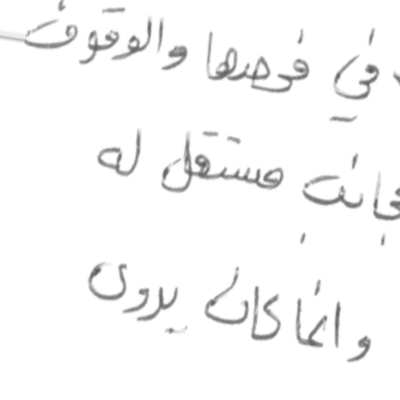 في فحصها والوقوف
جانب مستقل له
وانما كان يروى